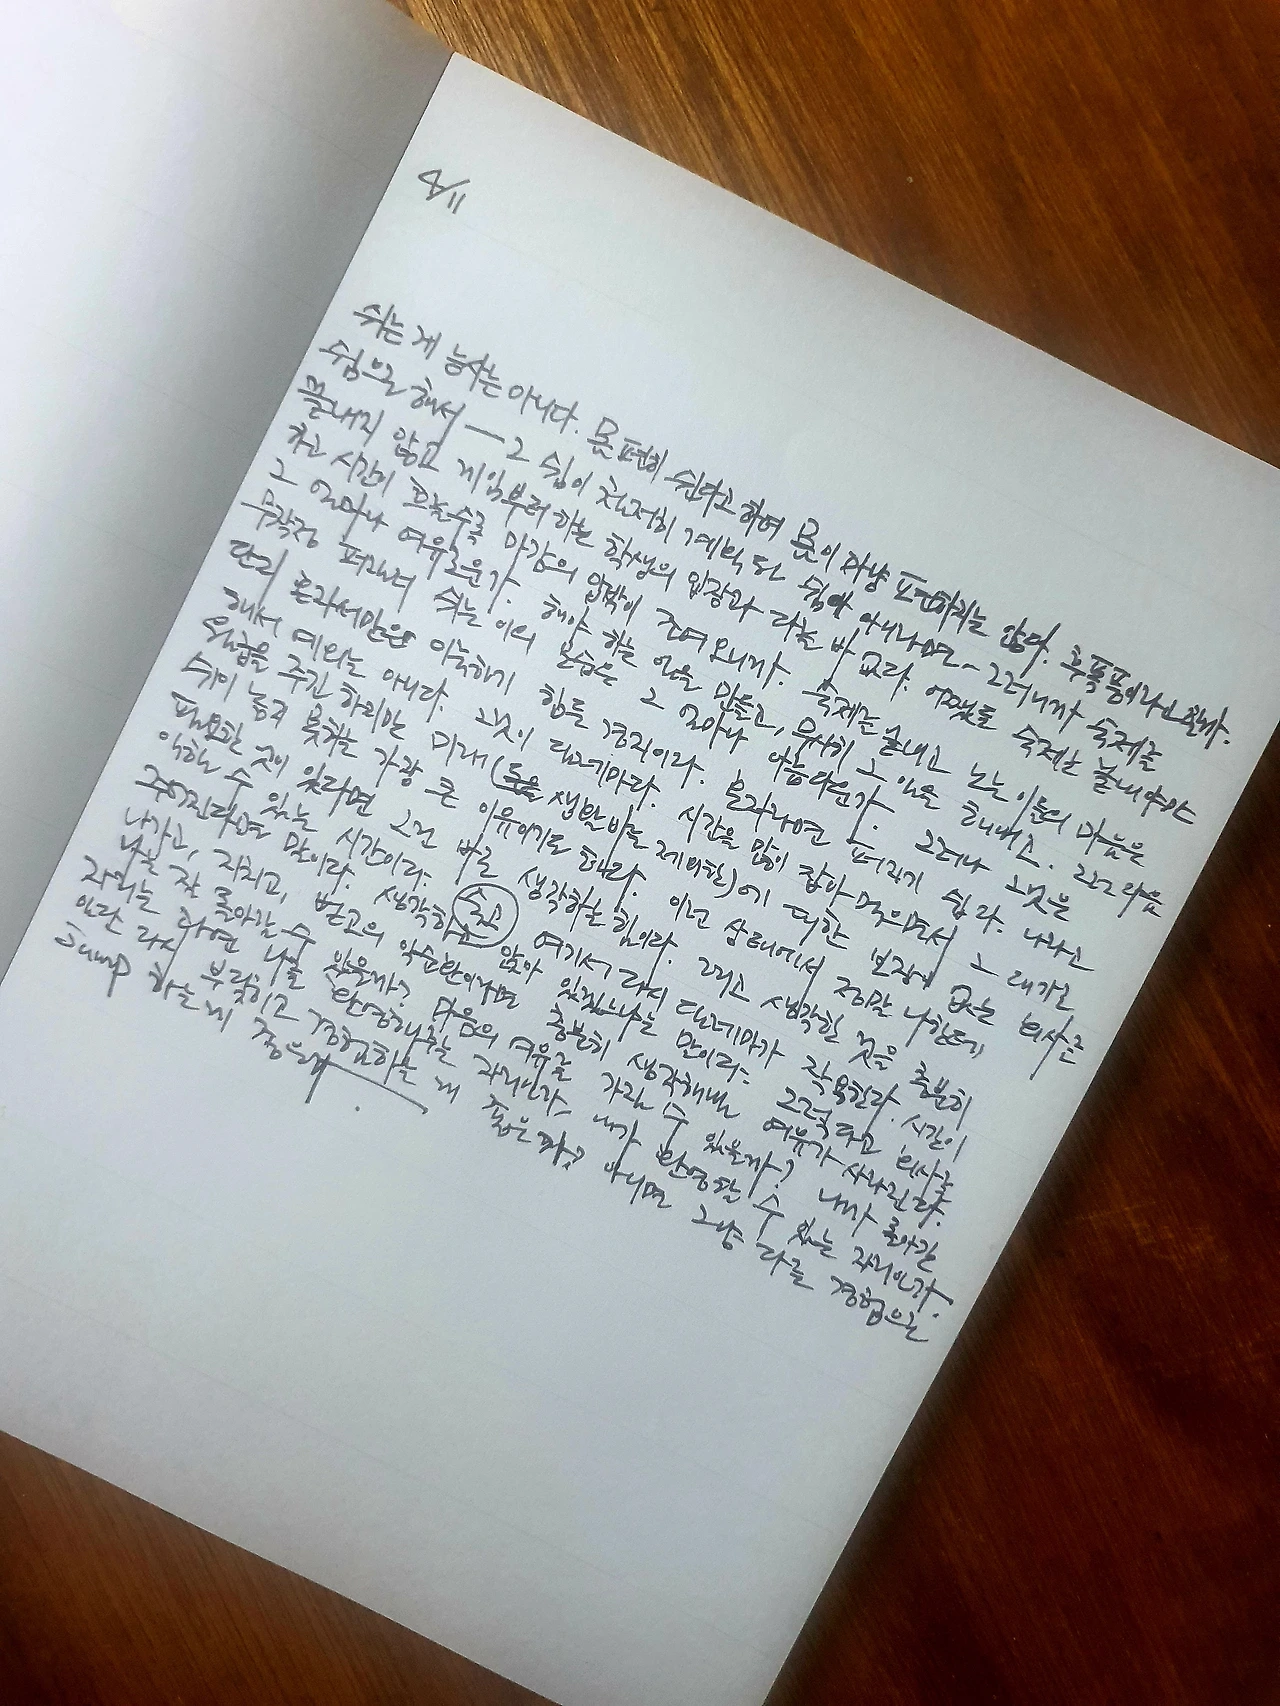 4/11
쉬는 게 능사는 아니다. 몸 편히 쉰다고 하여 몸이 마냥 편안하지는 않다. 후폭풍이라고 할까.
쉼으로 해서 — 그 쉼이 철저히 계획된 쉼이 아니라면 — 그러니까 숙제를
끝내지 않고 게임부터 하는 학생의 입장과 다를 바 없다. 어쨌든 숙제는 끝내야만
하고 시간이 흐를수록 마감의 압박이 조여오니까. 숙제를 끝내고 노는 이들의 마음은
그 얼마나 여유로운가. 해야 하는 일을 만들고, 무사히 그 일을 끝내고. 그리고 다음
무작정 퍼질러 쉬는 이의 모습은 그 얼마나 아름다운가. 그러나 그것은
단지 혼자서만은 이룩하기 힘든 경지이다. 혼자라면 퍼지기 쉽다. 나라고
해서 예외는 아니다. 그것이 딜레마다. 시간을 많이 잡아 먹으면서 그 대가로
월급을 주긴 하지만 미래( 제외한)에 대한 보장이 없는 회사를
쉬이 놓지 못하는 가장 큰 이유이기도 하다. 이런 상태에서 정말 나한테
필요한 것이 있다면 그건 바로 생각하는 힘이다. 그리고 생각한 것을 충분히
익힐 수 있는 시간이다. 여기서 다시 딜레마가 작용한다. 시간이
주어진다면 말이다. 생각하고 앉아 있겠느냐는 말이다. 그렇다고 회사를
나가고, 지치고, 악순환이라면 충분히 생각해낼 여유가 사라진다.
나는 잘 돌아갈 수 있을까? 마음의 여유를 가질 수 있을까? 내가 돌아갈
자리는 과연 나를 환영해주는 자리인가, 내가 환영할 수 있는 자리인가.
일단 다시 부딪히고 경험하는 게 좋은가? 아니면 그냥 다른 경험으로
Jump 하는 게 좋은가.